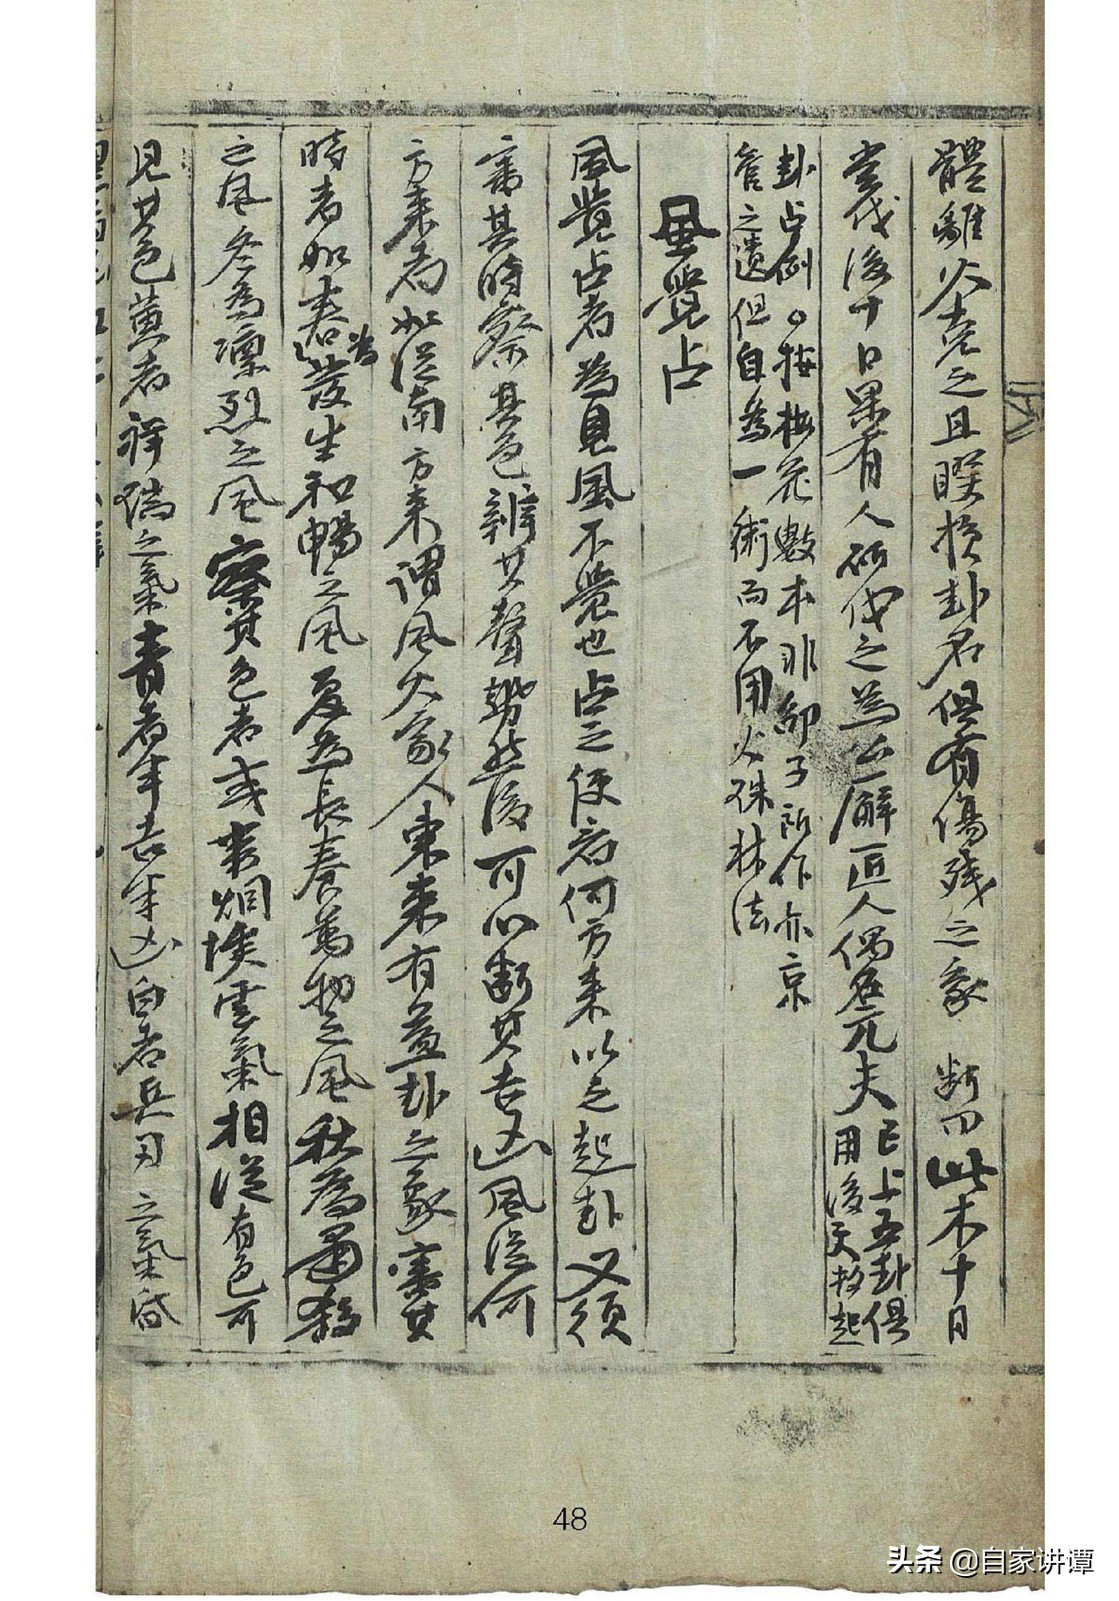 體離火克之且睽損卦名俱有傷殘之象 斷曰此木十月
當伐後十日果有人斫伐之為公廨匠人偶名元夫 已上五卦俱
用後天數起
卦占例○按梅花數本非邵子所作亦京
管之遺但自為一術而不用火硃林法
風覺占
風覺占者為見風不覺也占之便看何方來以之起卦又須
審其時察其色辨其聲勢然後可以斷其吉凶風從何
方來者如從南方來謂風火家人東來有益卦之象審其
時者如春為發生和暢之風夏為長養萬物之風秋為肅殺
之風冬為凜烈之風察其色者或帶烟埃雲氣相從有色可
見其色黃者祥瑞之氣青者半吉半凶白者兵刃之氣昏
48
头条 @自家讲谭